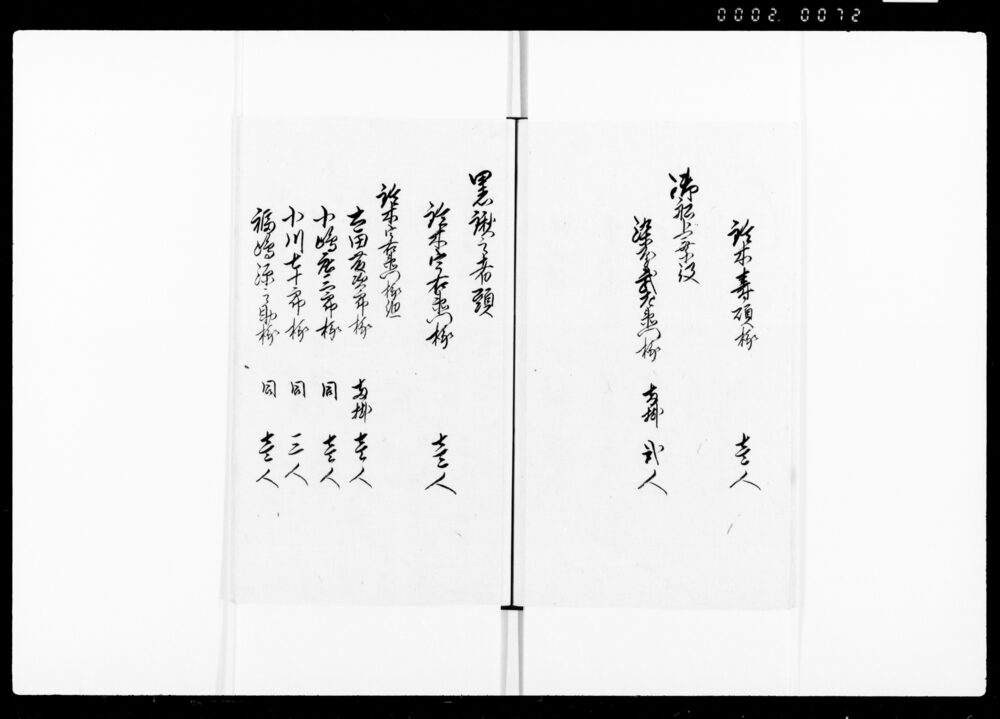 0002.0072
鈴木寿碩様 壱人
御船上乗役
染木武左衛門様 両掛 弐人
黒鍬之者頭
鈴木宇右衛門様 壱人
鈴木宇右衛門様組
吉田 様 両掛 壱人
小嶋 三郎様 同 壱人
小川七十郎様 同 三人
福嶋源之助様 同 壱人